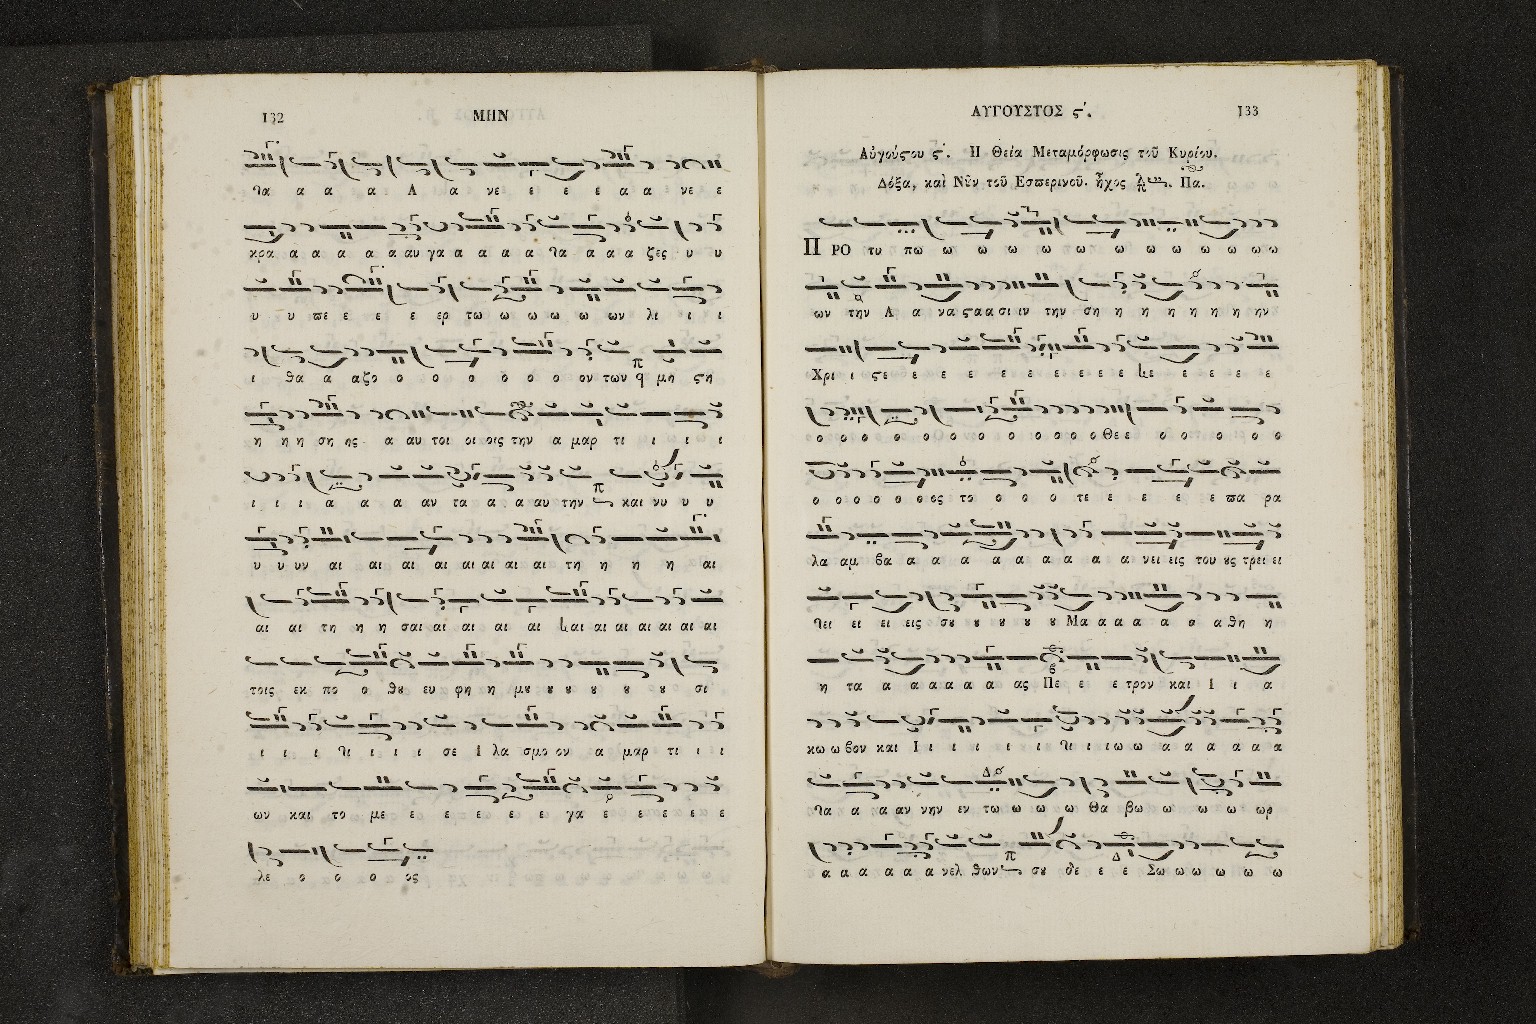 132
ΜΗΝ
λα α α α Α α νε ε ε ε ε α α νε ε
κρα α α α α α αυ γα α α α α λα α α α ζες υ υ
υ υ πε ε ε ε ερ τω ω ω ω ω ων λι ι ι
ι θα α αζο ο ο ο ο ο ο ον των μη ϛη
η η η ση ης α αυ τοι οι οις την α μαρ τι ι ι ι
ι ι ι α α α αν τα α α αυ την και νυ υ υ
υ υ υν αι αι αι αι αι αι αι αι τη η η η αι
αι αι τη η η σαι αι αι αι αι και αι αι αι αι αι
τοις εκ πο ο θȣ ευ φη η μȣ ȣ ȣ ȣ ȣ ȣ σι
ι ι ι λι ι ι ι σε Ι λα σμο ον α μαρ τι ι ι
ων και το με ε ε ε ε ε ε γα ε ε ε ε ε
λε ο ο ο ο ος
ΑΥΓΟΥΣΤΟΣ ϛ'.
133
Αὐγούϛου ϛ'. Η Θεία Μεταμόρφωσις τοῦ Κυρίου.
Δόξα, καὶ Νῦν τοῦ Εσπερινοῦ. ἦχος Πα.
ΠΡΟ τυ πω ω ω ω ω ω ω ω ω ω ω ω
ων την Α α να ϛα α σι ιν την ση η η η η η η ην
Χρι ι ϛε ε ε ε ε ε ε ε ε κε ε ε ε ε
ο ο ο ο ο ο ο ο ο ο ο ο ο Θε ε ο ο ο ο ο
ο ο ο ο ο ο ος το ο ο ο τε ε ε ε ε πα ρα
λα αμ βα α α α α α α α α α νει εις του ȣς τρει ει
λει ει ει εις σȣ ȣ ȣ ȣ ȣ Μα α α α α α α θη η
η τα α α α α α ας Πε ε ε τρον και Ι ι α
κω ω βον και Ι ι ι ι ι ι λι ι ι ω ω α α α α α α
λα α α αν νην εν τω ω ω ω ω Θα βω ω ω ω ωρ
α α α α α α νελ θων σου δε ε ε Σω ω ω ω ω ω